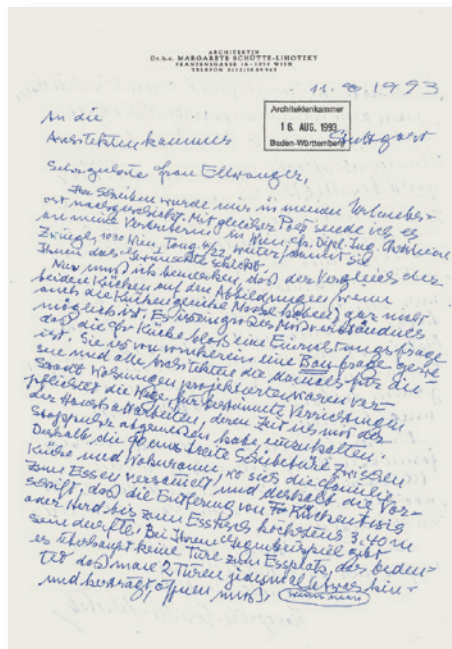 ARCHITEKTIN
Dr. h.c. MARGARETE SCHÜTTE-LIHOTZKY
FRANZENSGASSE 16 · 1050 WIEN
11. 8. 1993.
Architektenkammer
16. AUG. 1993
Baden-Württemberg
An die
Architektenkammer Stuttgart
Sehr geehrte Frau Ellwanger,
Ihr Schreiben wurde mir in meinen Urlaubs-
ort nachgeschickt. Mit gleicher Post sende ich es
an meine Vertreterin in Wien, Dipl. Ing.
Zwingl, 1030 Wien, weiter, damit sie
Ihnen das Gewünschte schickt.
Nur muß ich bemerken, daß der Vergleich der
beiden Küchen auf den Abbildungen (wenn
auch die Küchen gleiche Masse haben) gar nicht
möglich ist. Es ist ein großes Missverständnis
daß die Fr Küche bloß eine Einrichtungsfrage
ist. Sie ist von vornherein eine Baufrage
und alle Architekten die damals für die
Stadt Wohnungen projektierten waren ver-
pflichtet die Wege für bestimmte Verrichtungen
der Hausarbeiten, deren Zeit ich mit der
Stoppuhr abgenommen habe, einzuhalten.
Deshalb die breite Schiebetüre zwischen
Küche und Wohnraum, wo sich die Familie
zum Essen versammelt und deshalb die Vor-
schrift, daß die Entfernung von Fr Küchentisch
oder Herd bis zum Esstisch höchstens 3.40 m
sein durfte. Bei Ihrem gibt
es überhaupt keine Türe zum Essplatz, das bedeu-
tet daß man 2 Türen jedesmal hin-
und öffnen muß.